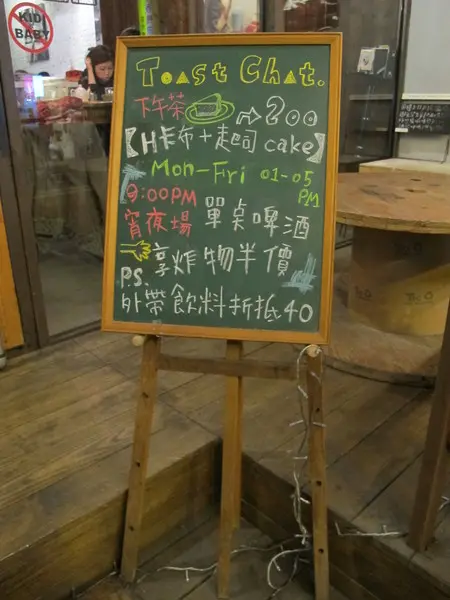 KID
BABY
Toast Chat.
下午茶 ⇨200
【H卡布+起司 cake】
Mon-Fri 01-05 PM
9:00PM
宵夜場 單桌啤酒
享炸物半價
P.S.
外帶飲料折抵40